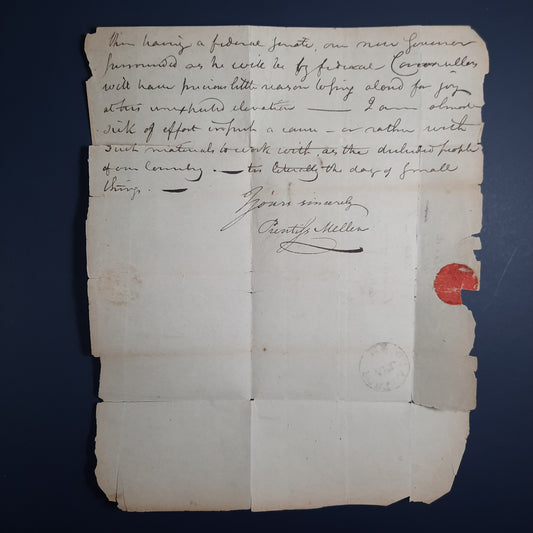 then having a federal Senate, our new Governor
surrounded as he will be by federal Councillors
will have precious little reason to sing aloud for joy
at this unexpected elevation — I am almost
sick of effort in such a cause – or rather with
such materials to work with, as the deluded people
of our Country. — tis literally the day of small
things. —
Yours sincerely
Prentiss Mellen